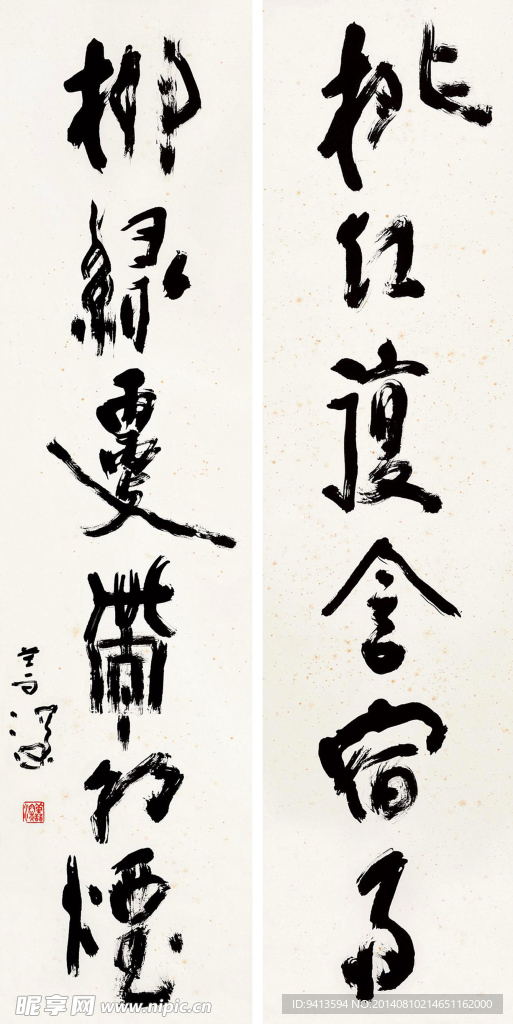 桃紅復含宿雨
柳綠更帶朝煙
昵享网 www.nipic.cn
ID:9413594 NO:20140810214651162000